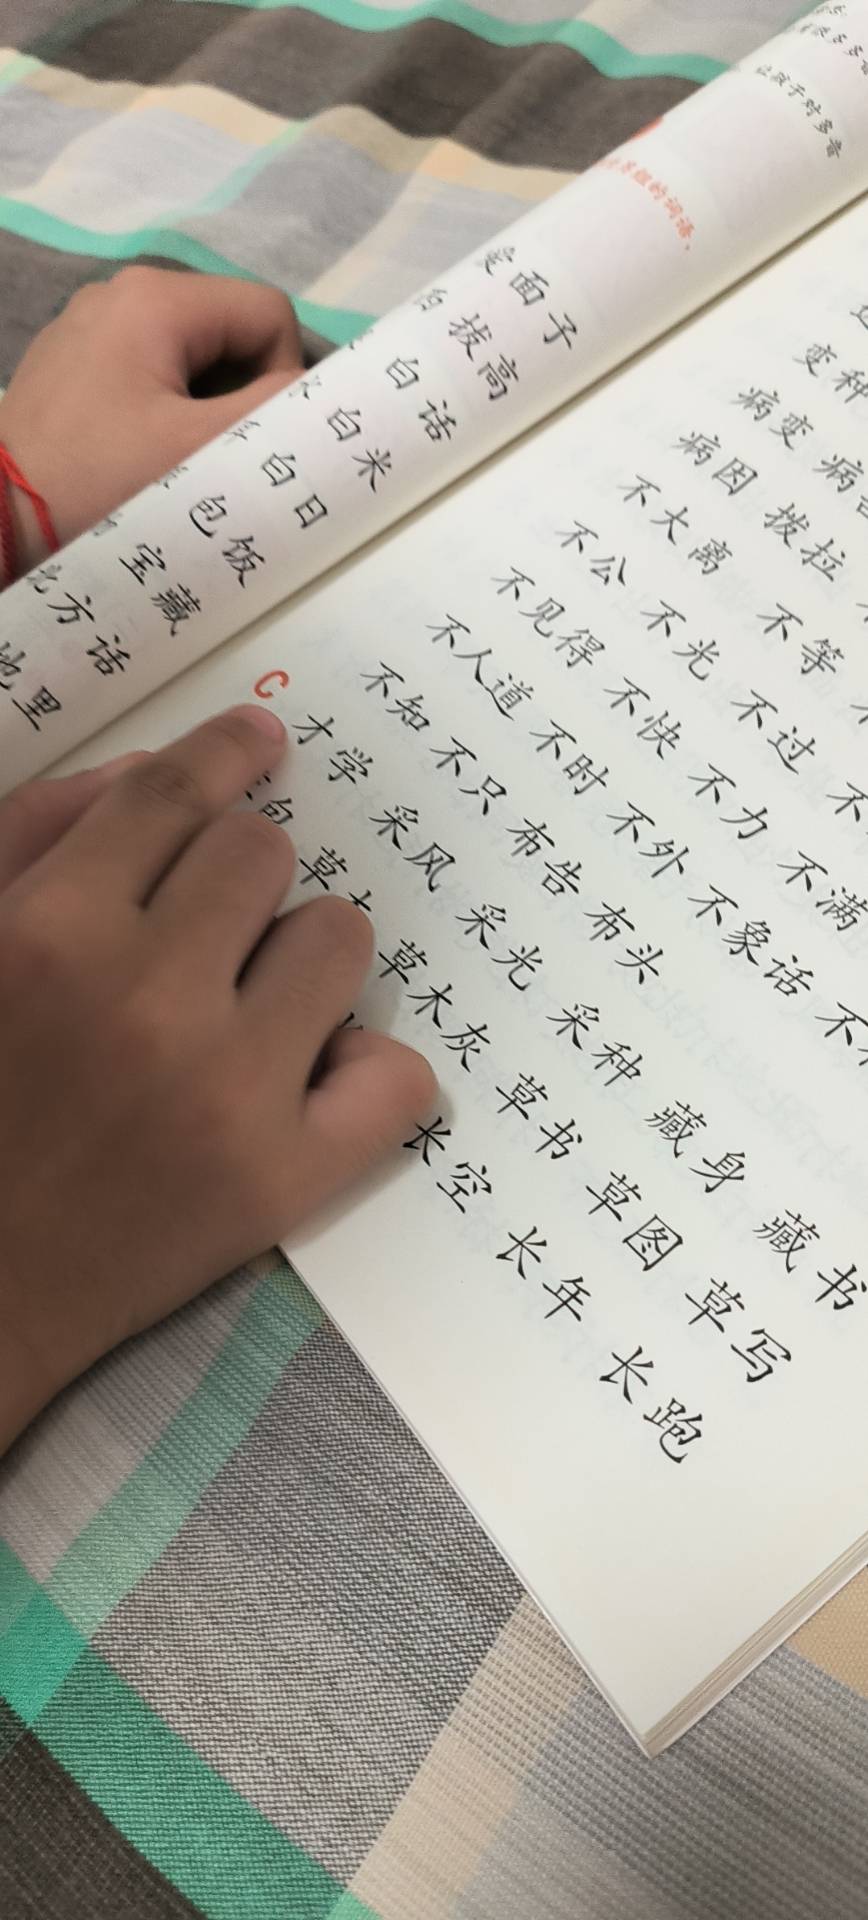 让孩子对多音
等级的词语，
面子
拔高
白话
白米
白日
包饭
宝藏
北方话
地里
变种
病变 病
病因 拨拉
不大离 不等 不
不公 不光 不过 不
不见得 不快 不力 不满
不人道 不时 不外 不象话 不
不知 不只 布告 布头
C
才学 采风 采光 采种 藏身 藏书
句 草 草木灰 草书 草图 草写
长空 长年 长跑